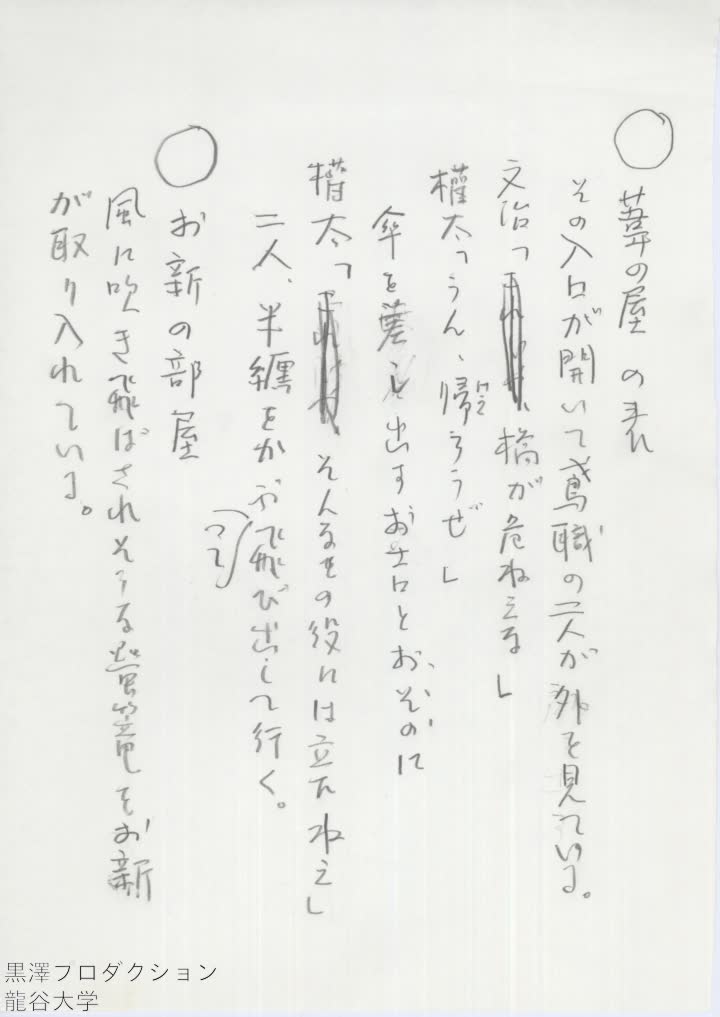 葦の屋の表
その入口が開いて鳶職の二人が外を見ている。
文治「橋が危ねえな」
権太「うん、帰えろうぜ」
傘を差し出すお吉とおそのに
権太「そんなもの役には立たねえ」
二人、半纏をかぶって飛び出して行く。
お新の部屋
風に吹き飛ばされそうな螢篭をお新
が取り入れている。
黒澤プロダクション
龍谷大学